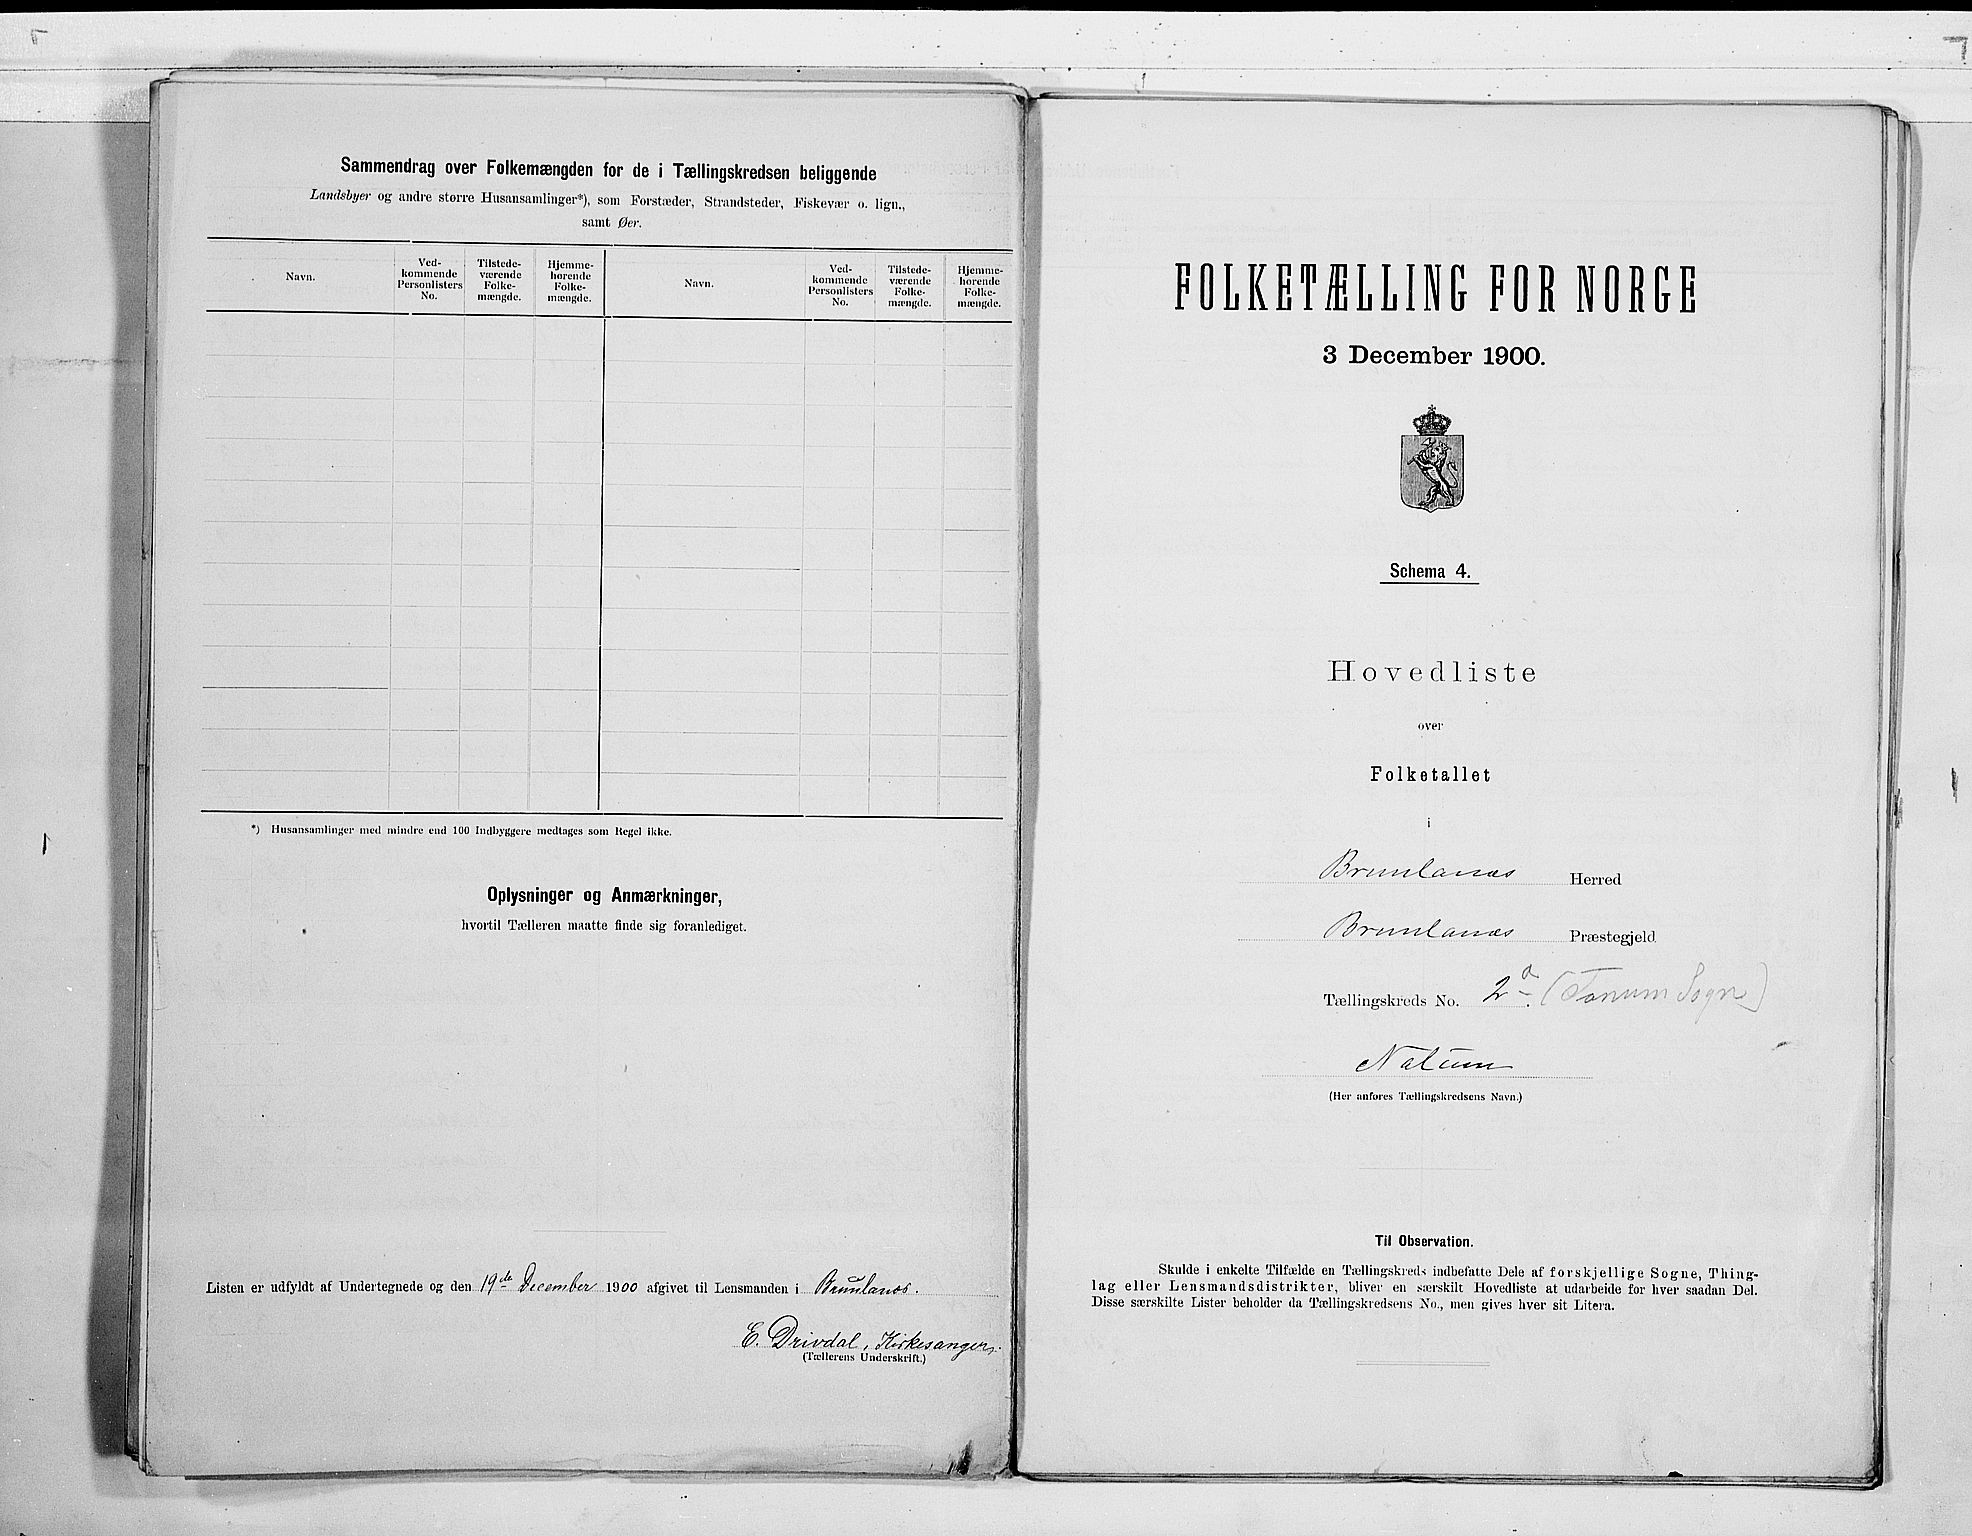 Sammendrag over Folkemængden for de i Tællingskredsen beliggende
Landsbyer og andre større Husansamlinger*), som Forstæder, Strandsteder, Fiskevær o. lign.,
samt Øer.
Navn.
Ved-
kommende
Personlisters
No.
Tilstede-
værende
Folke-
mængde.
Hjemme-
hørende
Folke-
mængde.
Navn.
Ved-
kommende
Personlisters
No.
Tilstede-
værende
Folke-
mængde.
Hjemme-
hørende
Folke-
mængde.
*) Husansamlinger med mindre end 100 Indbyggere medtages som Regel ikke.
Oplysninger og Anmærkninger,
hvortil Tælleren maatte finde sig foranlediget.
Listen er udfyldt af Undertegnede og den 19de December 1900 afgivet til Lensmanden i Brunlanæs.
E. Drivdal, Kirkesanger.
(Tællerens Underskrift.)
FOLKETÆLLING FOR NORGE
3 December 1900.
Schema 4.
Hovedliste
over
Folketallet
i
Brunlanæs Herred
Brunlanæs Præstegjeld
Tællingskreds No. 2a. (Tanum Sogn)
Nalum
(Her anføres Tællingskredsens Navn.)
Til Observation.
Skulde i enkelte Tilfælde en Tællingskreds indbefatte Dele af forskjellige Sogne, Thing-
lag eller Lensmandsdistrikter, bliver en særskilt Hovedliste at udarbeide for hver saadan Del.
Disse særskilte Lister beholder da Tællingskredsens No., men gives hver sit Litera.